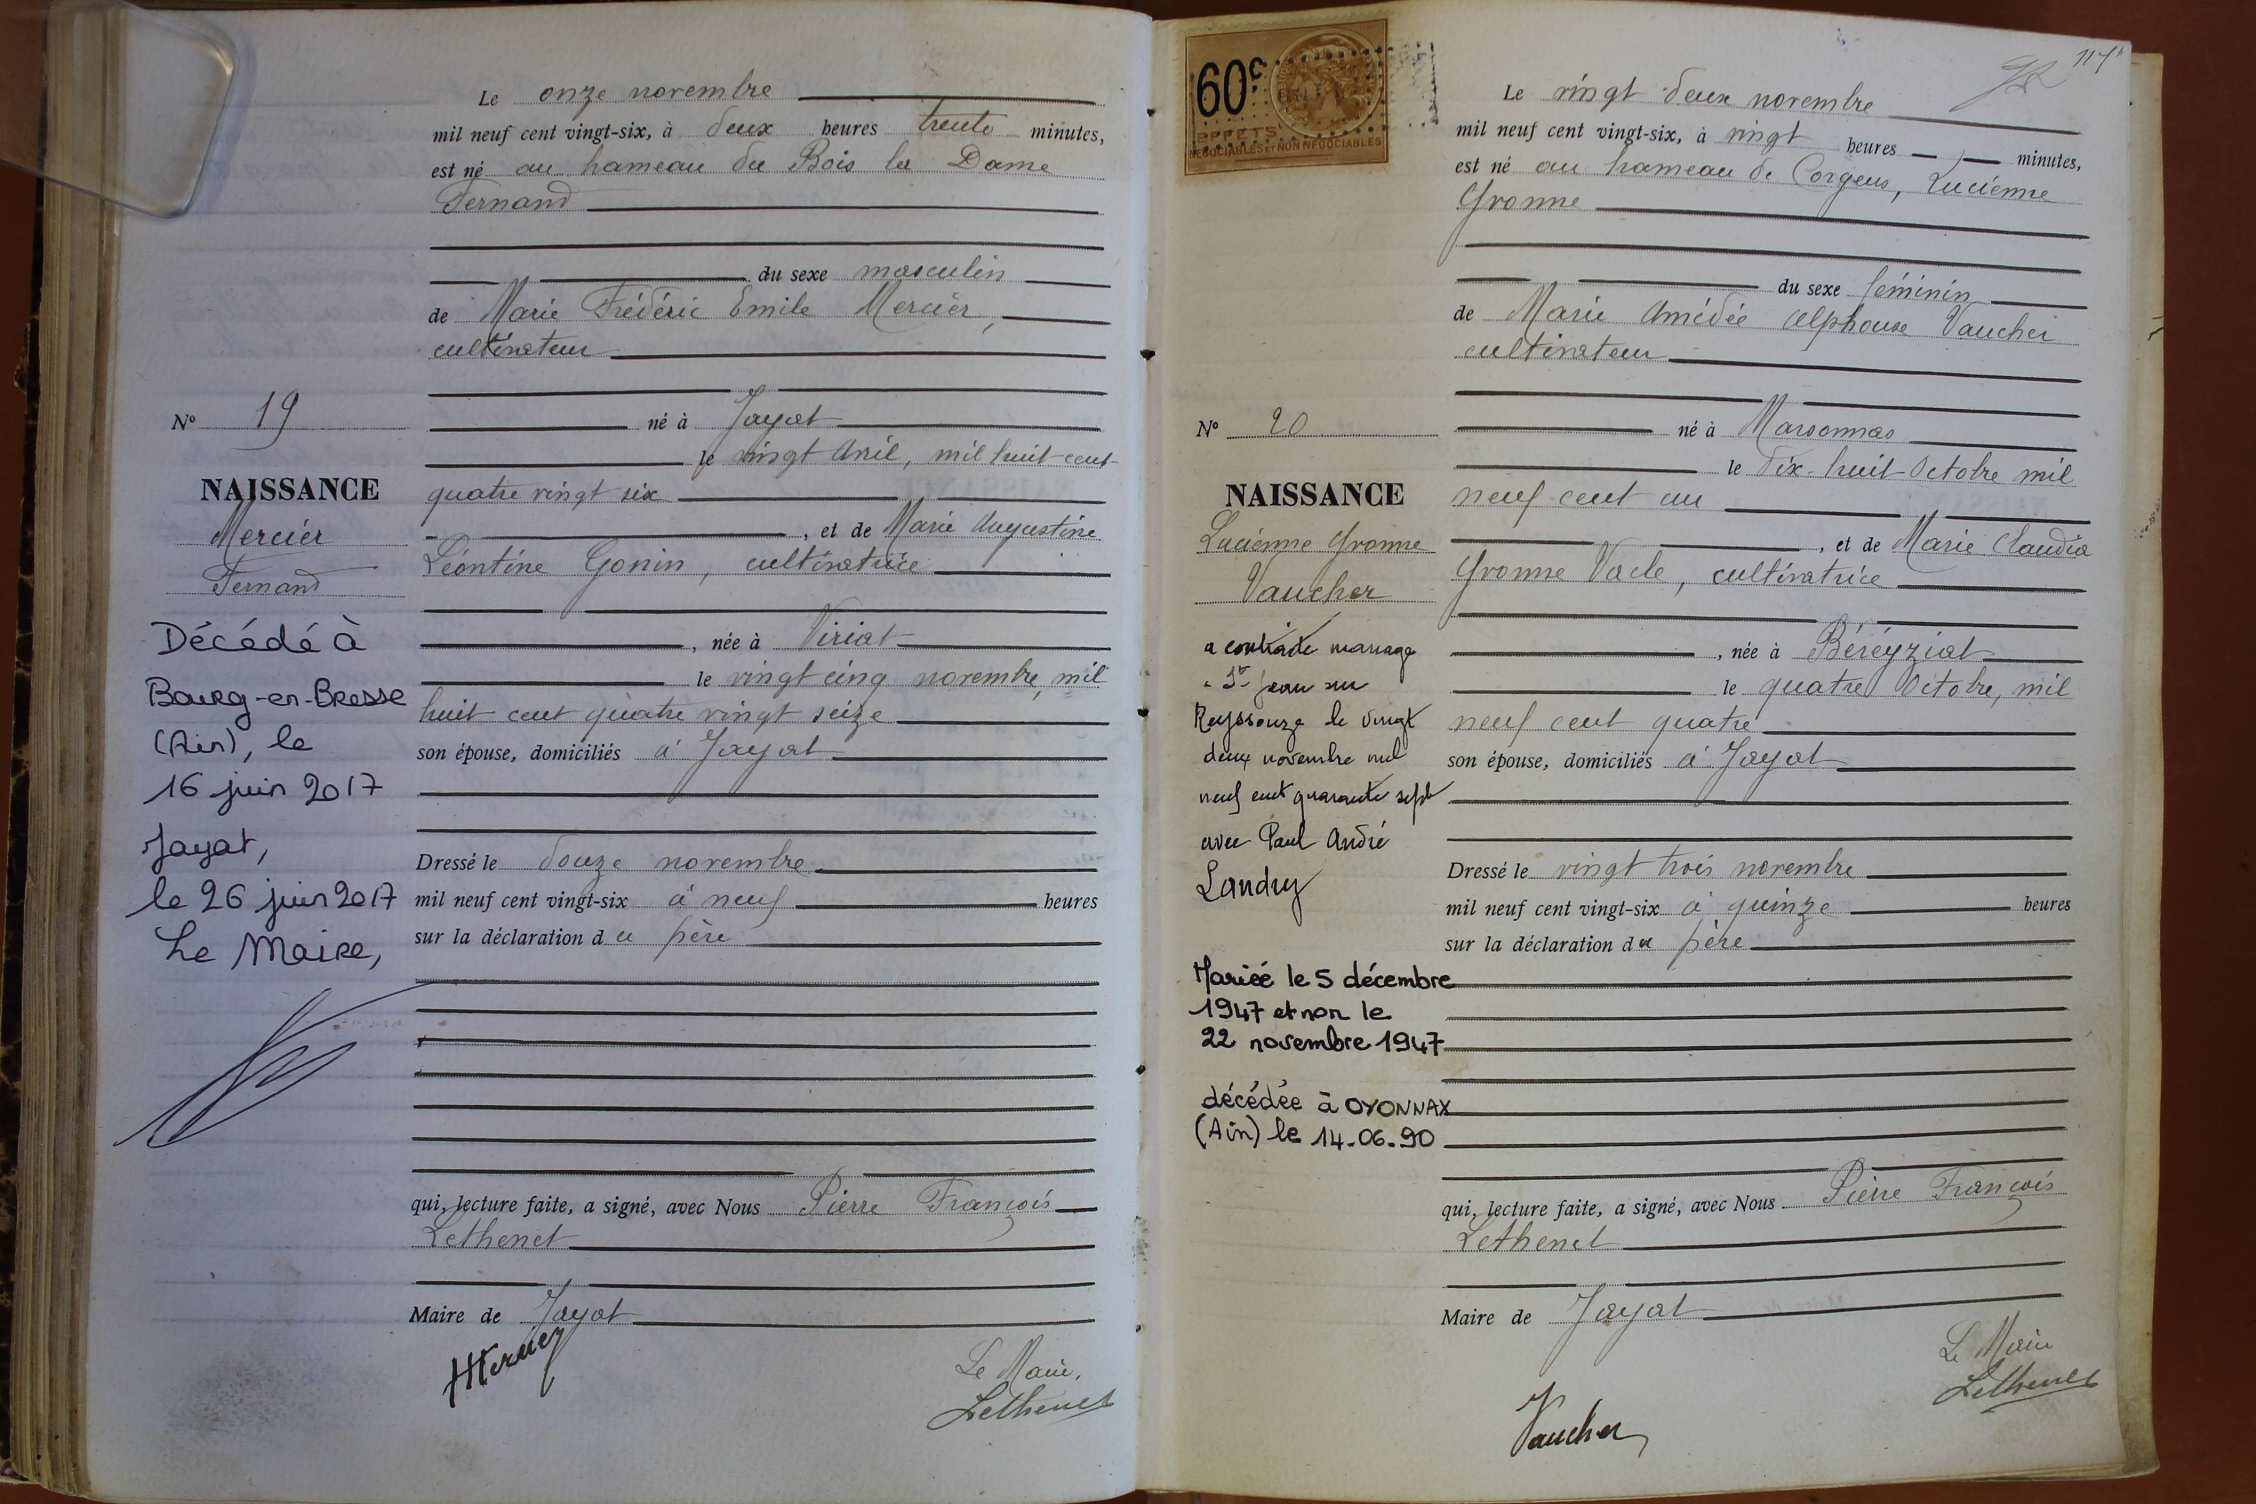 Le onze novembre
mil neuf cent vingt-six, à deux heures trente minutes,
est né au hameau du Bois la Dame
Fernand
du sexe masculin
de Marie Frédéric Emile Mercier,
cultivateur
né à Jayat
le vingt Avril, mil huit cent
quatre vingt six
, et de Marie Augustine
Léontine Gonin, cultivatrice
, née à Viriat
le vingt cinq novembre, mil
huit cent quatre vingt seize
son épouse, domiciliés à Jayat
Dressé le douze novembre
mil neuf cent vingt-six à neuf heures
sur la déclaration du père
qui, lecture faite, a signé, avec Nous Pierre François
Lethenet
Maire de Jayat
Le Maire,
Lethenet
No 19
NAISSANCE
Mercier
Fernand
Décédé à
Bourg-en-Bresse
(Ain), le
16 juin 2017
Jayat,
le 26 juin 2017
Le Maire,
60c
EFFETS
NÉGOCIABLES ET NON NÉGOCIABLES
Le vingt deux novembre
mil neuf cent vingt-six, à vingt heures minutes,
est né au hameau de Corgeus, Lucienne
Yvonne
du sexe féminin
de Marie Amédée Alphonse Vaucher
cultivateur
né à Marsonnas
le dix-huit Octobre mil
neuf cent un
, et de Marie Claudia
Yvonne Vacle, cultivatrice
, née à Béréyziat
le quatre Octobre, mil
neuf cent quatre
son épouse, domiciliés à Jayat
Dressé le vingt trois novembre
mil neuf cent vingt-six à quinze heures
sur la déclaration du père
qui, lecture faite, a signé, avec Nous Pierre François
Lethenet
Maire de Jayat
Le Maire
Lethenet
Vaucher
No 20
NAISSANCE
Lucienne Yvonne
Vaucher
a contracté mariage
à St Jean sur
Reyssouze le vingt
deux novembre mil
neuf cent quarante sept
avec Paul André
Landry
Mariée le 5 décembre
1947 et non le
22 novembre 1947
décédée à OYONNAX
(Ain) le 14-06-90